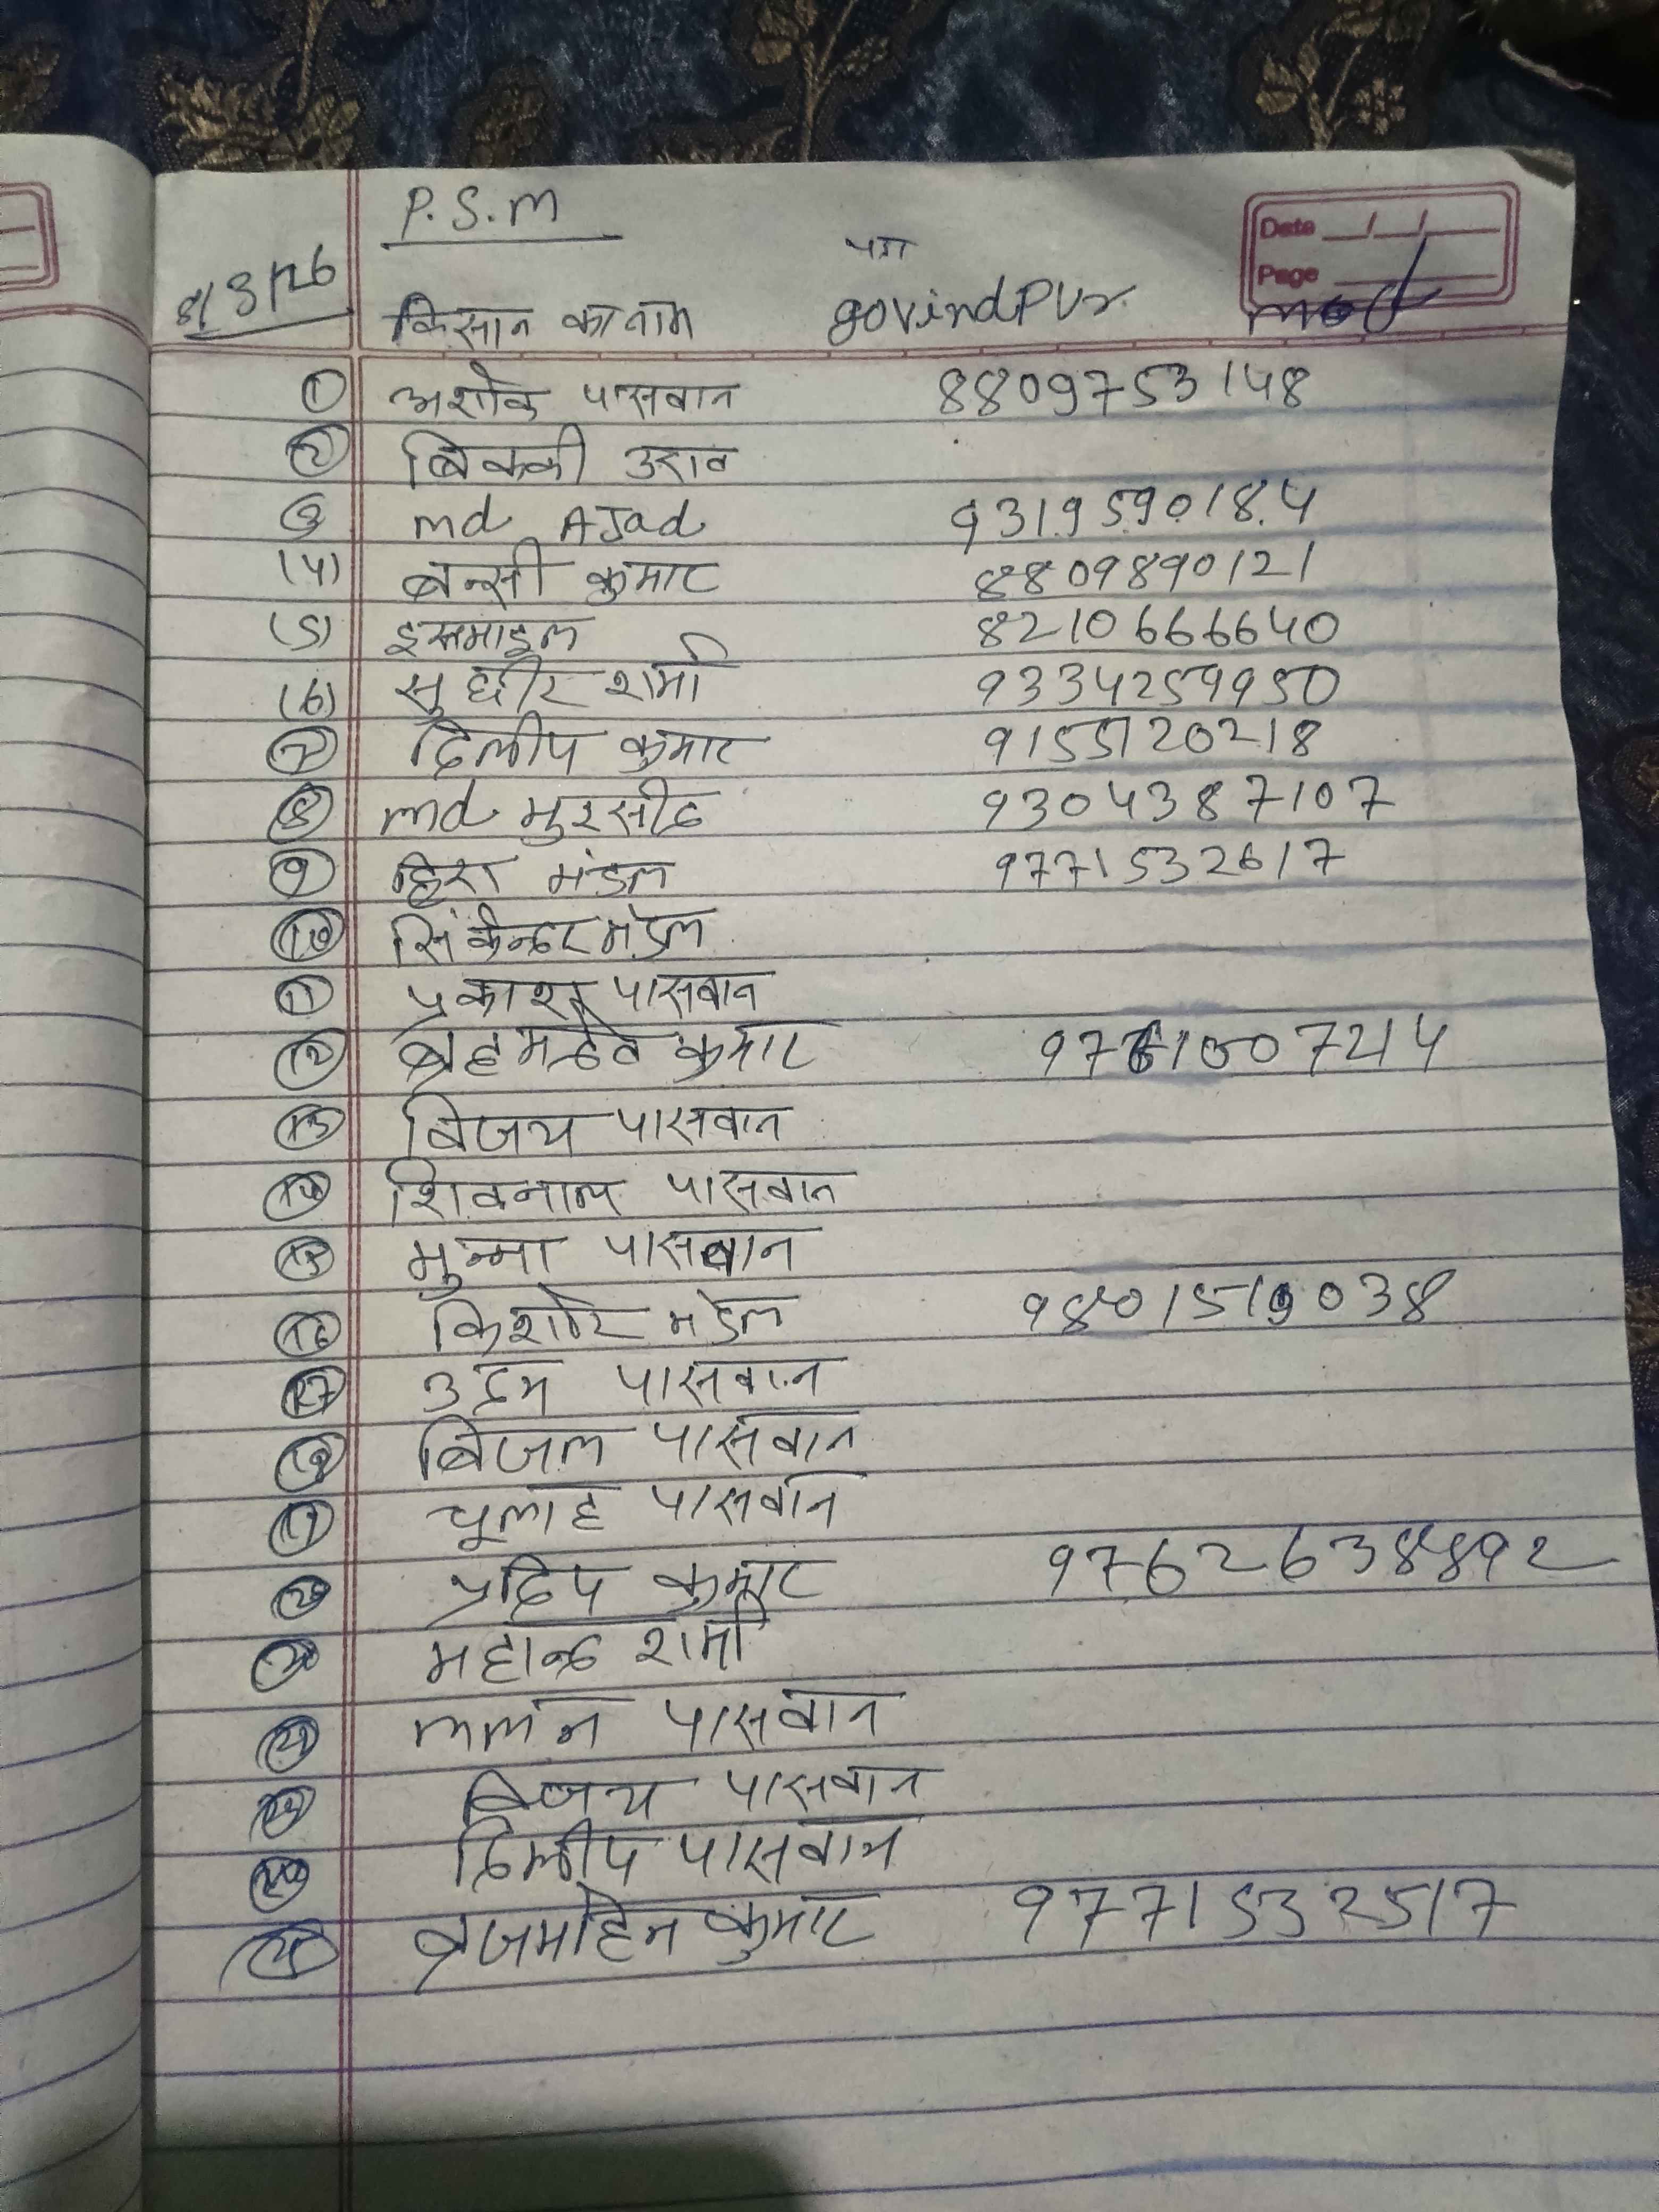 P.S.M
Date
Page
8/3/26
पता
किसान का नाम govindPur mod
① अशोक पासवान 8809753148
② बिक्की उराव
③ md AJad 9319590184
(4) बन्सी कुमार 8809890121
(5) इसमाइल 8210666640
(6) सुधीर शर्मा 9334259950
⑦ दिलीप कुमार 9155120218
⑧ md मुरसीद 9304387107
⑨ हिरा मंडल 9771532617
⑩ सिकेन्दर मंडल
⑪ प्रकाश पासवान
⑫ ब्रहमदेव कुमार
⑬ बिजय पासवान
⑭ शिवनाल पासवान
⑮ मुन्ना पासवान
⑯ किशोर मंडल
⑰ उदम पासवान
⑱ बिजल पासवान
⑲ चूलाह पासवान
⑳ प्रदिप कुमार 97626388892
शर्मा
ललन पासवान
बिजय पासवान
दिलीप पासवान
ब्रजमोहन कुमार 9771532517